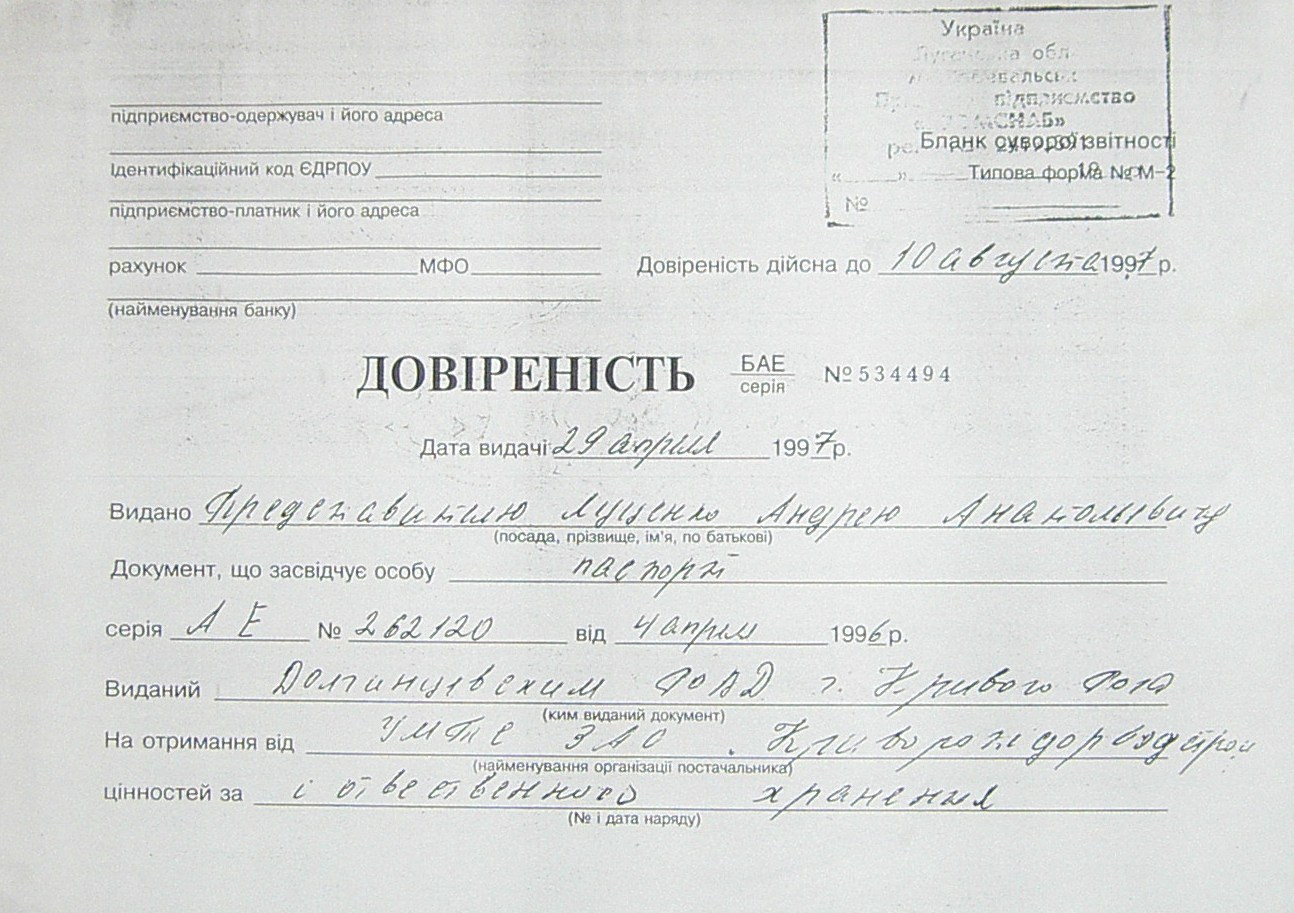 Україна
обл
підприємство
Бланк суворої звітності
Типова форма № М-2
№
підприємство-одержувач і його адреса
Ідентифікаційний код ЄДРПОУ
підприємство-платник і його адреса
рахунок МФО
Довіреність дійсна до 10 августа 1997 р.
(найменування банку)
ДОВІРЕНІСТЬ БАЕ № 534494
серія
Дата видачі 29 апреля 1997 р.
Видано Представителю Луценко Андрею Анатольевичу
(посада, прізвище, ім'я, по батькові)
Документ, що засвідчує особу паспорт
серія АЕ № 262120 від 4 апреля 1996 р.
Виданий Долгинцевским РОВД г. Кривого Рога
(ким виданий документ)
На отримання від УМТС ЗАО
(найменування організації постачальника)
цінностей за ответственного хранения
(№ і дата наряду)